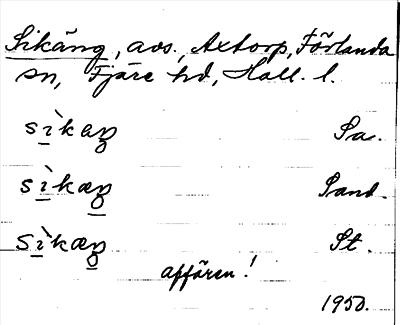 Sikäng, avs., Axtorp, Förlanda
sn, Fjäre hd, Hall. l.
sìkaŋ Sa.
sìkæŋ Sand.
sìkæŋ St.
affären!
1950.